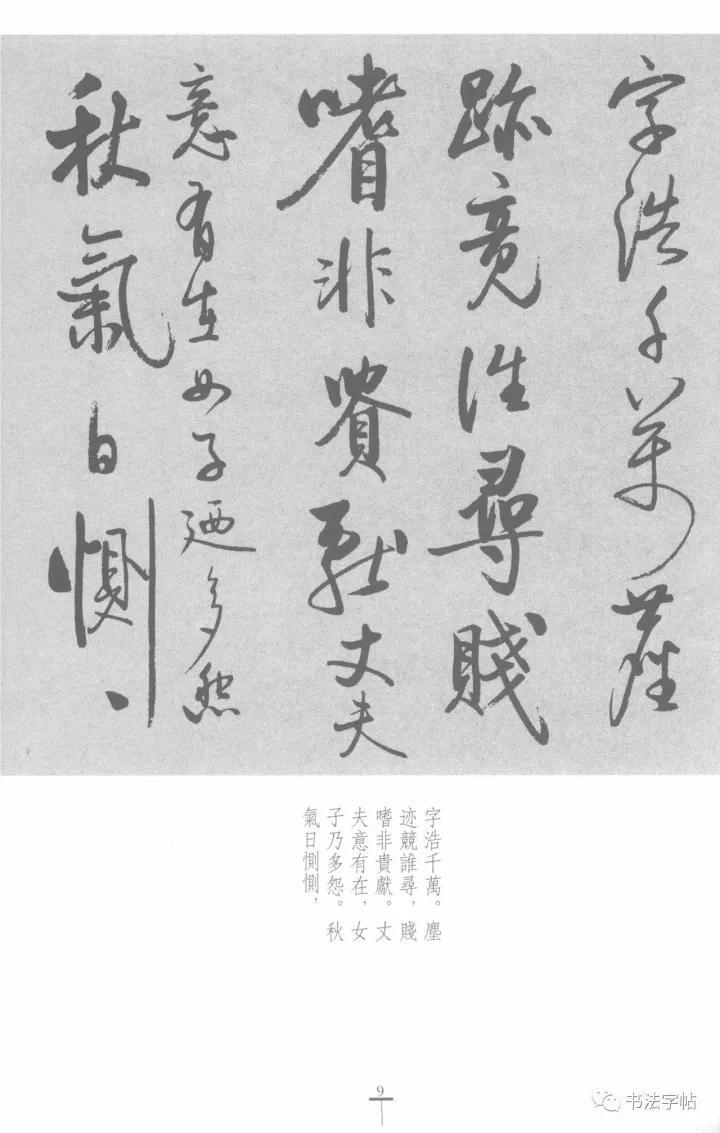 字浩千萬塵
跡竟誰尋賤
嗜非貴獻丈夫
意有在女子廼多怨
秋氣日惻〻
字浩千萬。塵
迹競誰尋，賤
嗜非貴獻。丈
夫意有在，女
子乃多怨。秋
氣日惻惻，
9
书法字帖